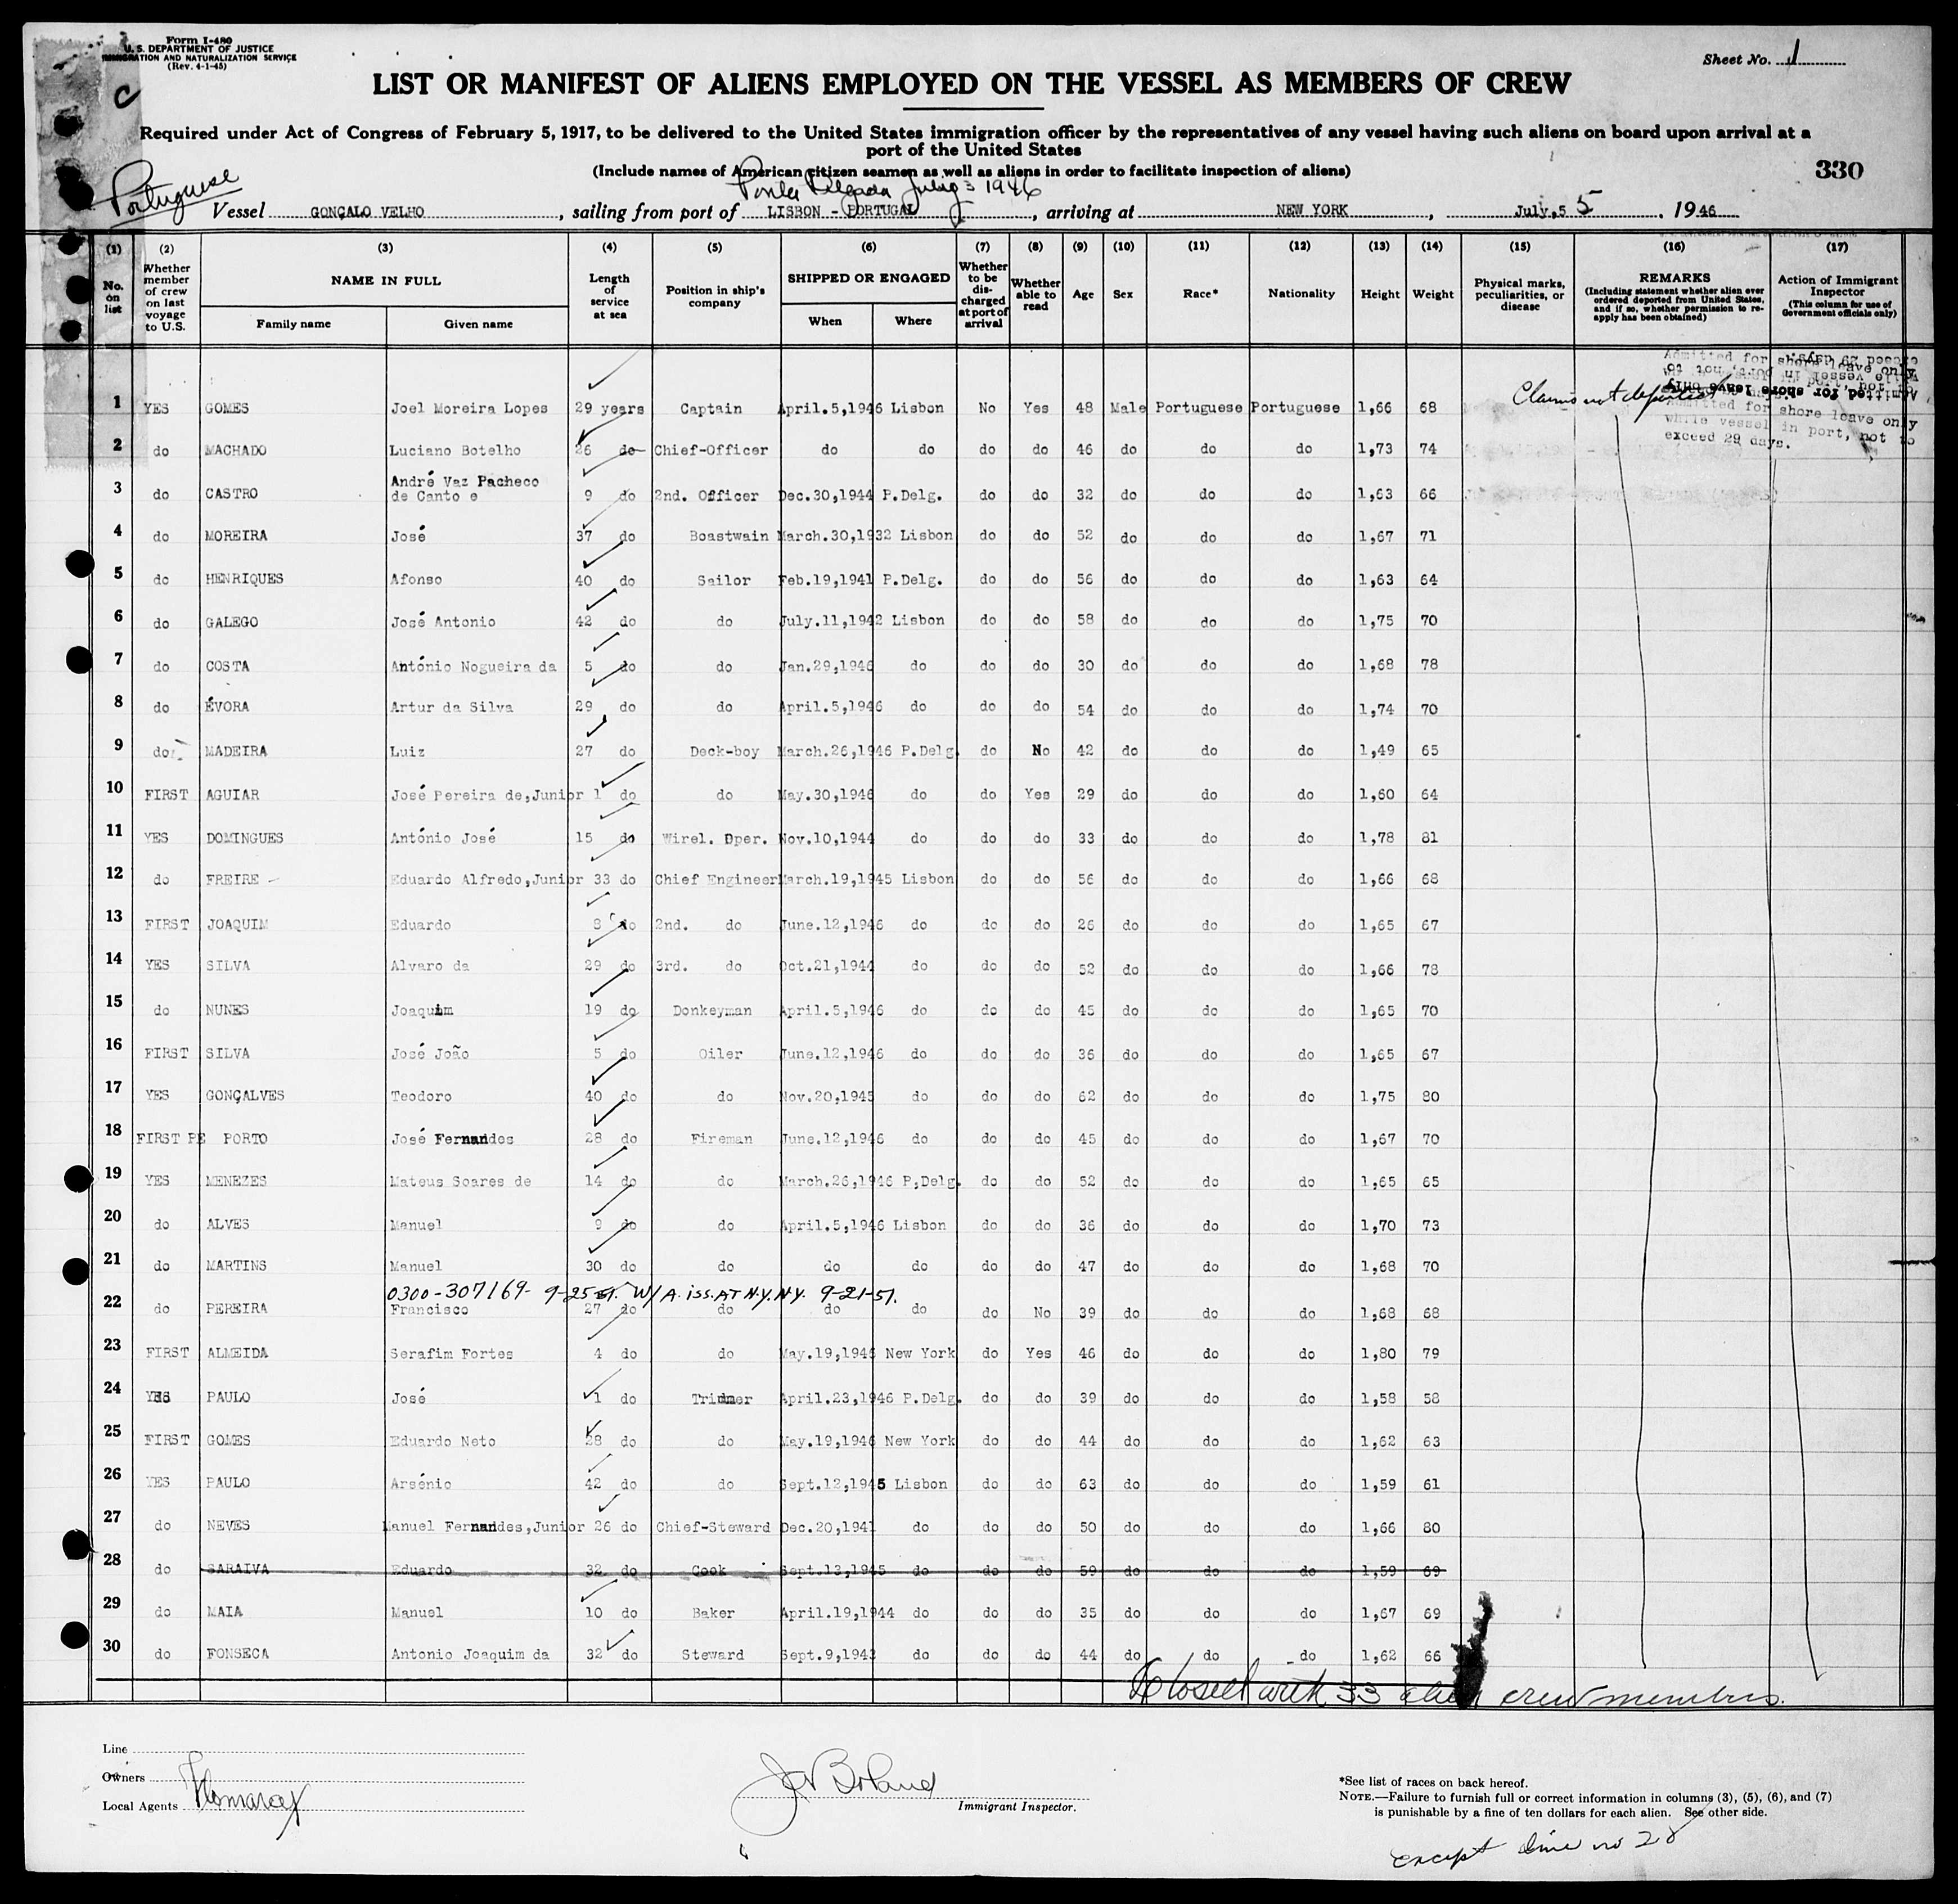 Form I-480
U. S. DEPARTMENT OF JUSTICE
IMMIGRATION AND NATURALIZATION SERVICE
(Rev. 4-1-45)
Sheet No. 1
C
LIST OR MANIFEST OF ALIENS EMPLOYED ON THE VESSEL AS MEMBERS OF CREW
Required under Act of Congress of February 5, 1917, to be delivered to the United States immigration officer by the representatives of any vessel having such aliens on board upon arrival at a
port of the United States
(Include names of American citizen seamen as well as aliens in order to facilitate inspection of aliens)
330
Portuguese
Ponta Delgada July 3 1946
Vessel GONÇALO VELHO, sailing from port of LISBON - PORTUGAL, arriving at NEW YORK, July,5 5, 1946
(1) (2) (3) (4) (5) (6) (7) (8) (9) (10) (11) (12) (13) (14) (15) (16) (17)
No. on list
Whether member of crew on last voyage to U.S.
NAME IN FULL
Family name
Given name
Length of service at sea
Position in ship's company
SHIPPED OR ENGAGED
When
Where
Whether to be discharged at port of arrival
Whether able to read
Age
Sex
Race*
Nationality
Height
Weight
Physical marks, peculiarities, or disease
REMARKS
(Including statement whether alien ever ordered deported from United States, and if so, whether permission to re-apply has been obtained)
Action of Immigrant Inspector
(This column for use of Government officials only)
Claims not deported
Admitted for shore leave only
while vessel in port, not to
exceed 29 days.
1 YES GOMES Joel Moreira Lopes 29 years Captain April.5,1946 Lisbon No Yes 48 Male Portuguese Portuguese 1,66 68
2 do MACHADO Luciano Botelho 26 do Chief-Officer do do do do 46 do do do 1,73 74
3 do CASTRO André Vaz Pacheco de Canto e 9 do 2nd. Officer Dec.30,1944 P.Delg. do do 32 do do do 1,63 66
4 do MOREIRA José 37 do Boastwain March.30,1932 Lisbon do do 52 do do do 1,67 71
5 do HENRIQUES Afonso 40 do Sailor Feb.19,1941 P.Delg. do do 56 do do do 1,63 64
6 do GALEGO José Antonio 42 do do July.11,1942 Lisbon do do 58 do do do 1,75 70
7 do COSTA António Nogueira da 5 do do Jan.29,1946 do do do 30 do do do 1,68 78
8 do ÉVORA Artur da Silva 29 do do April.5,1946 do do do 54 do do do 1,74 70
9 do MADEIRA Luiz 27 do Deck-boy March.26,1946 P.Delg. do No 42 do do do 1,49 65
10 FIRST AGUIAR José Pereira de,Junior 1 do do May.30,1946 do do Yes 29 do do do 1,60 64
11 YES DOMINGUES António José 15 do Wirel. Oper. Nov.10,1944 do do do 33 do do do 1,78 81
12 do FREIRE Eduardo Alfredo,Junior 33 do Chief Engineer March.19,1945 Lisbon do do 56 do do do 1,66 68
13 FIRST JOAQUIM Eduardo 8 do 2nd. do June.12,1946 do do do 26 do do do 1,65 67
14 YES SILVA Alvaro da 29 do 3rd. do Oct.21,1944 do do do 52 do do do 1,66 78
15 do NUNES Joaquim 19 do Donkeyman April.5,1946 do do do 45 do do do 1,65 70
16 FIRST SILVA José João 5 do Oiler June.12,1946 do do do 36 do do do 1,65 67
17 YES GONÇALVES Teodoro 40 do do Nov.20,1945 do do do 62 do do do 1,75 80
18 FIRST PE PORTO José Fernandes 28 do Fireman June.12,1946 do do do 45 do do do 1,67 70
19 YES MENEZES Mateus Soares de 14 do do March.26,1946 P,Delg. do do 52 do do do 1,65 65
20 do ALVES Manuel 9 do do April.5,1946 Lisbon do do 36 do do do 1,70 73
21 do MARTINS Manuel 30 do do do do do do 47 do do do 1,68 70
0300-307169- 9-25-51. W/A. iss. AT N.Y. N.Y. 9-21-51.
22 do PEREIRA Francisco 27 do do do do do No 39 do do do 1,68 68
23 FIRST ALMEIDA Serafim Fortes 4 do do May.19,1946 New York do Yes 46 do do do 1,80 79
24 YES PAULO José 1 do Trimmer April.23,1946 P.Delg. do do 39 do do do 1,58 58
25 FIRST GOMES Eduardo Neto 28 do do May.19,1946 New York do do 44 do do do 1,62 63
26 YES PAULO Arsénio 42 do do Sept.12,1945 Lisbon do do 63 do do do 1,59 61
27 do NEVES Manuel Fernandes,Junior 26 do Chief-Steward Dec.20,1941 do do do 50 do do do 1,66 80
28 do SARAIVA Eduardo 32 do Cook Sept.13,1945 do do do 59 do do do 1,59 69
29 do MAIA Manuel 10 do Baker April.19,1944 do do do 35 do do do 1,67 69
30 do FONSECA Antonio Joaquim da 32 do Steward Sept.9,1943 do do do 44 do do do 1,62 66
Closed with 33 alien crew members.
Line
Owners
Local Agents
J Boland
Immigrant Inspector.
*See list of races on back hereof.
NOTE.—Failure to furnish full or correct information in columns (3), (5), (6), and (7)
is punishable by a fine of ten dollars for each alien. See other side.
except line no 28